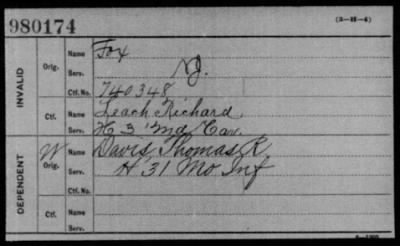 980174
(3-25-4)
INVALID
Orig.
Name Fox
Serv. NJ.
Ctf. No. 740348
Ctf.
Name Leach Richard
Serv. H 3" Md Cav.
DEPENDENT
W
Orig.
Name Davis, Thomas R
Serv. H 31 Mo Inf
Ctf. No.
Ctf.
Name
Serv.